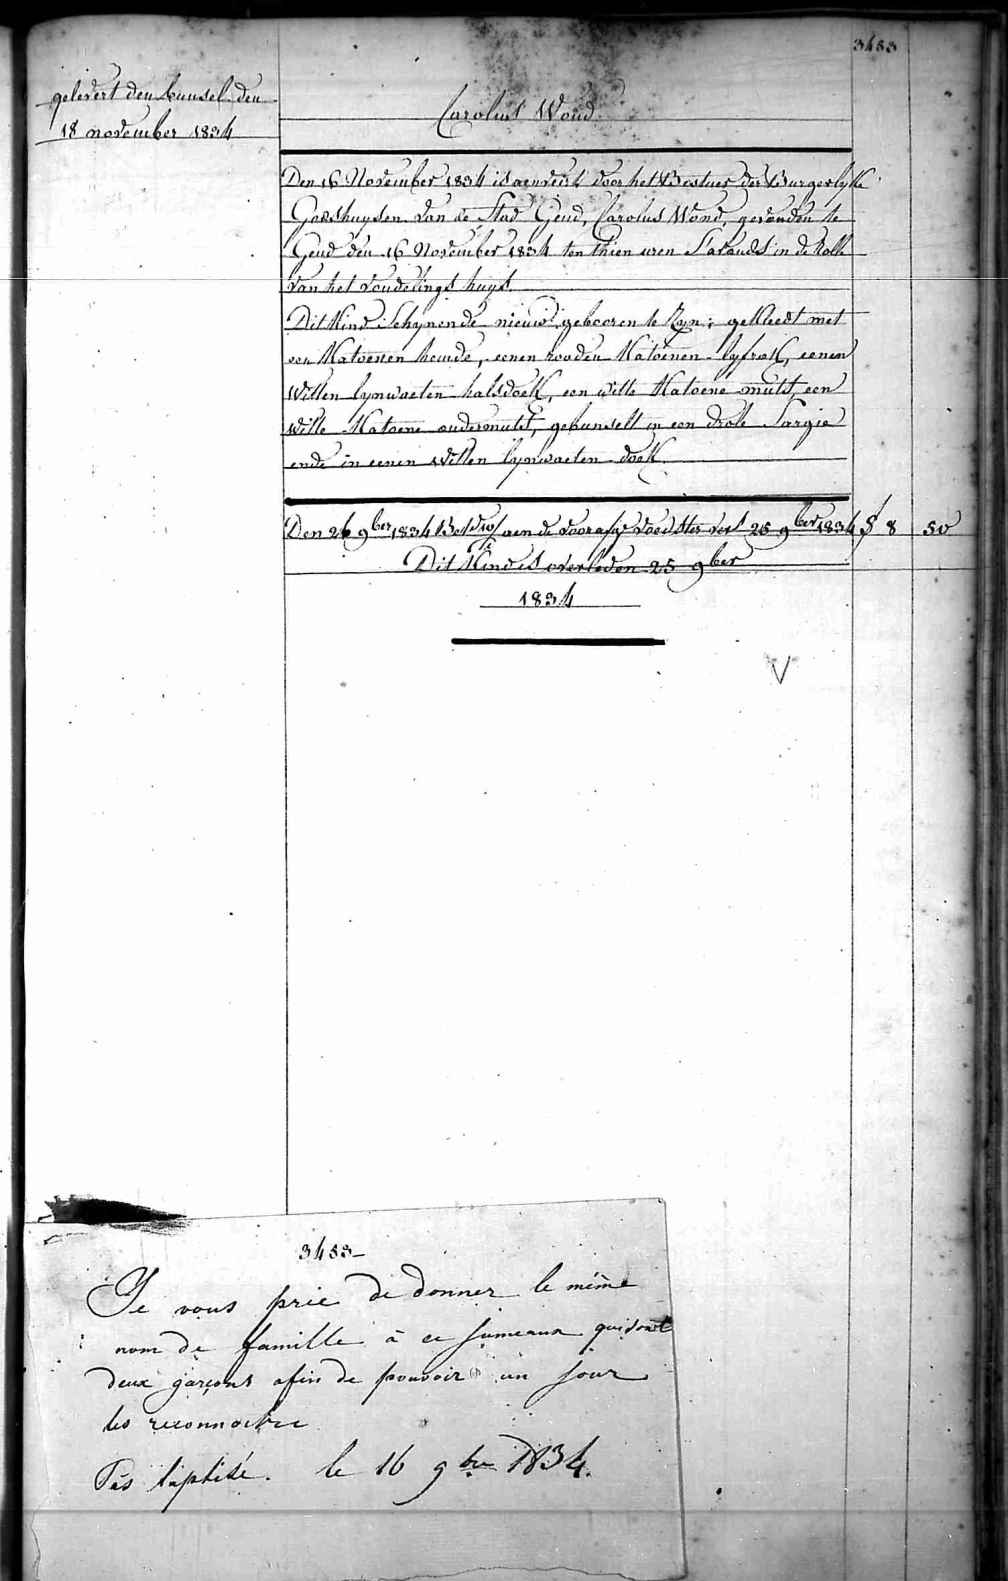 3483
gelevert den bunsel den
18 november 1834
Carolus Wond
Den 16 November 1834 is aenveirt door het Bestuer der Burgerlyke
Godshuysen van de Stad Gend, Carolus Wond, gevonden te
Gend den 16 November 1834 ten thien uren S'avonds in de Rolle
van het vondelings huys.
Dit Kind Schynende nieuws gebooren te Zyn; gekleedt met
een Katoenen hemde, eenen rooden Katoenen lyfrok, eenen
Witten lynwaeten halsdoek, een witte Katoene muts, een
witte Katoene ondermuts, gebunselt in een drolle Sargie
ende in eenen witten lynwaeten doek.
Den 26 9ber 1834 aen de voedster 25 9ber 1834 8 50
Dit Kind is overleden 25 9ber
1834
V
3483
Je vous prie de donner le même
nom de famille à ce jumeaux qui sont
deux garçons afin de pouvoir un jour
les reconnoitre
Pas baptisé. le 16 9bre 1834.